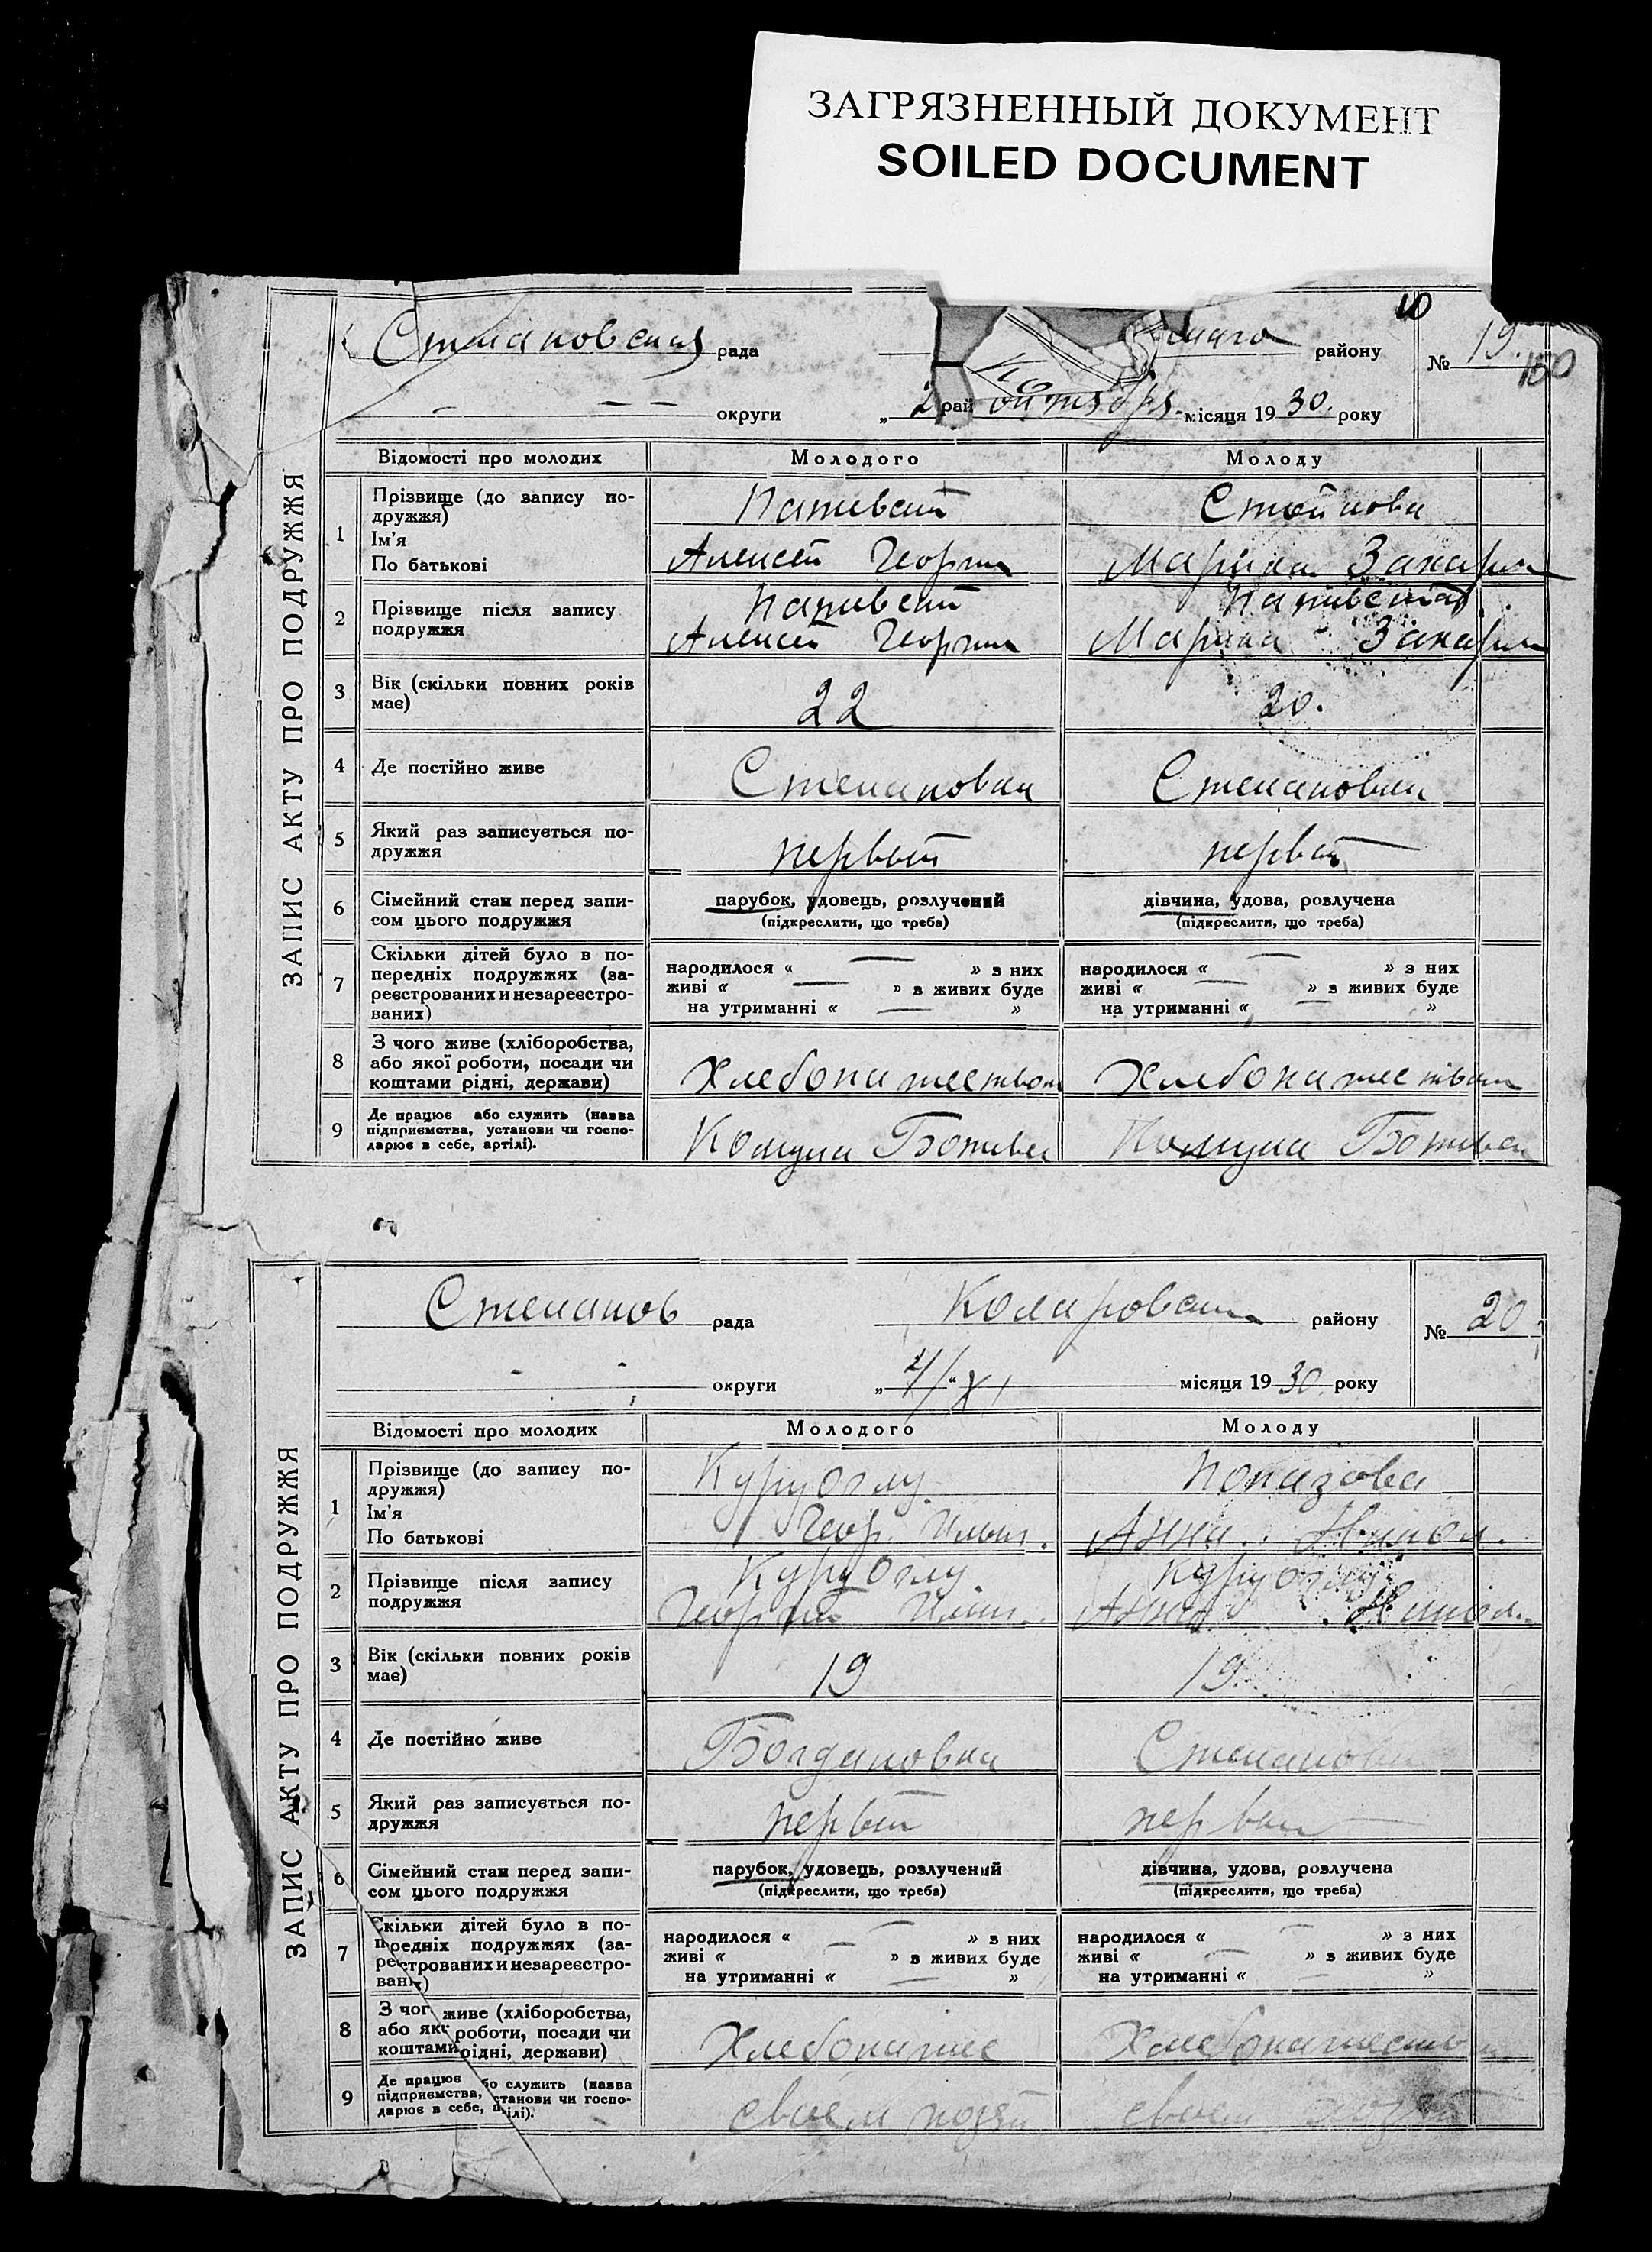 ЗАГРЯЗНЕННЫЙ ДОКУМЕНТ
SOILED DOCUMENT
ЗАПИС АКТУ ПРО ПОДРУЖЖЯ
10
Степановская рада району № 19.
150
округи „ 2 рай октября місяця 1930. року
Відомості про молодих Молодого Молоду
1 Прізвище (до запису по-
дружжя)
Ім'я
По батькові
Стойнова
Алексей Георги Марина Захари
2 Прізвище після запису
подружжя
Алексей Георги Марина Захари
3 Вік (скільки повних років
має)
22 20.
4 Де постійно живе Степановка Степановка
5 Який раз записується по-
дружжя
первый первый
6 Сімейний стан перед запи-
сом цього подружжя
парубок, удовець, розлучений дівчина, удова, розлучена
(підкреслити, що треба) (підкреслити, що треба)
7 Скільки дітей було в по-
передніх подружжях (за-
реєстрованих и незареєстро-
ваних)
народилося « — » з них народилося « — » з них
живі « — » з живих буде живі « — » з живих буде
на утриманні « — » на утриманні « — »
8 З чого живе (хліборобства,
або якої роботи, посади чи
коштами рідні, держави)
Хлебопашеством Хлебопашеством
9 Де працює або служить (назва
підприємства, установи чи госпо-
дарює в себе, артілі).
Комуна Ботева Комуна Ботева
ЗАПИС АКТУ ПРО ПОДРУЖЖЯ
Степанов рада Коларовского району № 20
округи „ 4/ “ XI місяця 1930. року
Відомості про молодих Молодого Молоду
1 Прізвище (до запису по-
дружжя)
Ім'я
По батькові
Куруоглу Попазова
Геор. Ильич. Анна. Никол.
2 Прізвище після запису
подружжя
Куруоглу Куруоглу
Георгий Ильич. Анна Никол.
3 Вік (скільки повних років
має)
19 19.
4 Де постійно живе Богдановка Степановка
5 Який раз записується по-
дружжя
первый первый
6 Сімейний стан перед запи-
сом цього подружжя
парубок, удовець, розлучений дівчина, удова, розлучена
(підкреслити, що треба) (підкреслити, що треба)
7 Скільки дітей було в по-
п редніх подружжях (за-
реєстрованих и незареєстро-
вани )
народилося « — » з них народилося « — » з них
живі « — » з живих буде живі « — » з живих буде
на утриманні « — » на утриманні « — »
8 З чог живе (хліборобства,
або як роботи, посади чи
коштами рідні, держави)
Хлебопаше Хлебопашеств
9 Де працює бо служить (назва
підприємства, станови чи госпо-
дарює в себе, а ілі).
своем хозяй своем хозяй